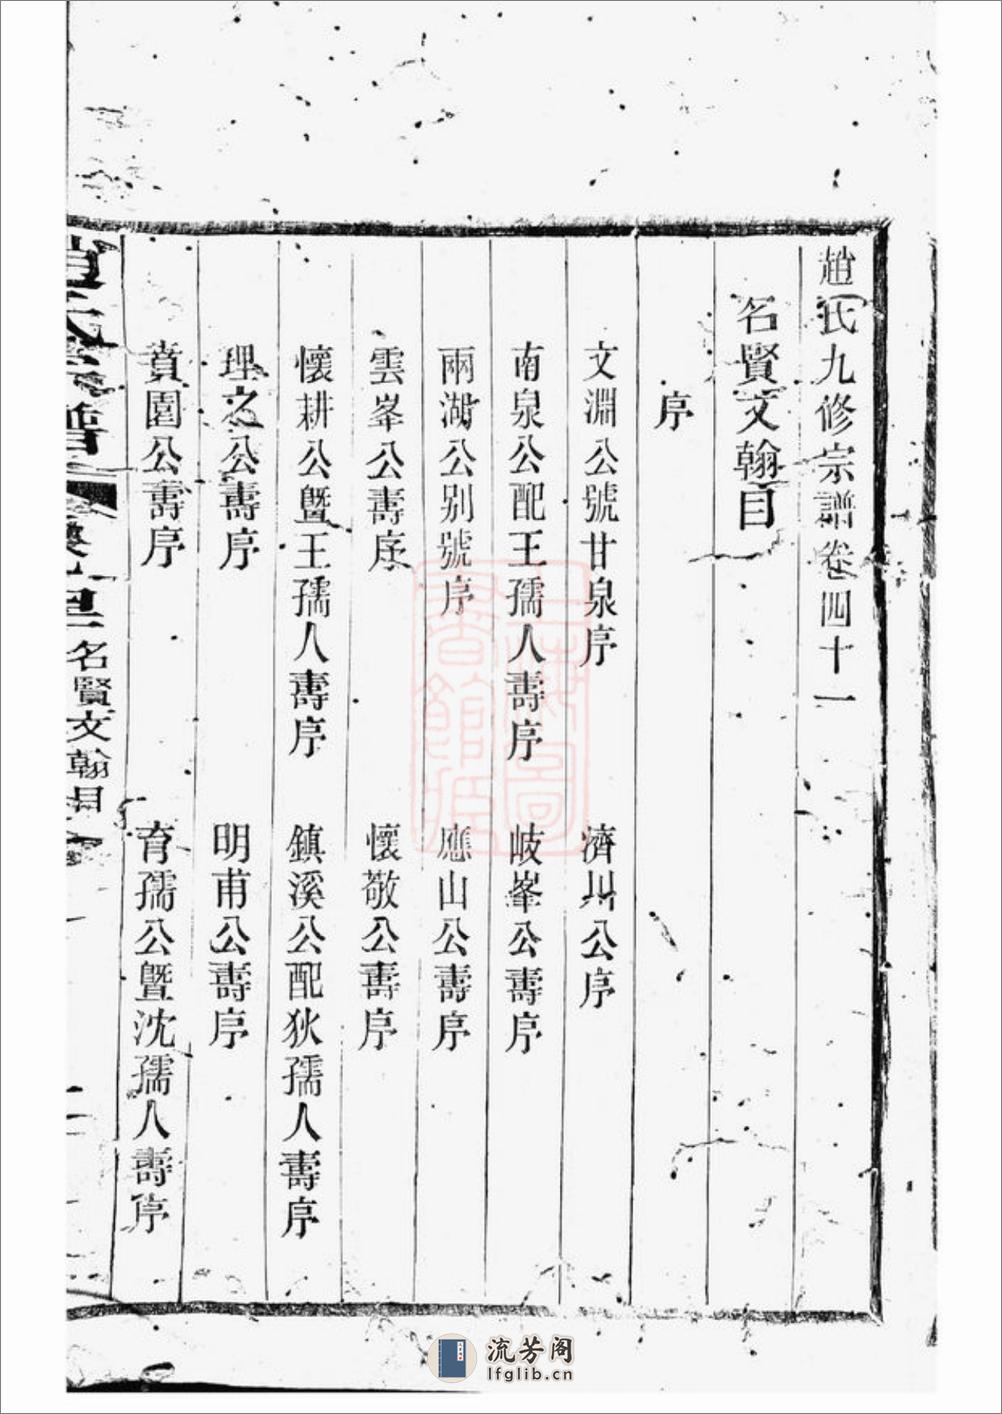 趙氏九修宗譜卷四十一
名賢文翰目
序
文淵公號甘泉序
濟川公序
南泉公配王孺人壽序
岐峯公壽序
兩湖公別號序
應山公壽序
雲峯公壽序
懷敬公壽序
懷耕公暨王孺人壽序
鎮溪公配狄孺人壽序
理之公壽序
明甫公壽序
賁園公壽序
育孺公暨沈孺人壽序
趙氏宗譜
名賢文翰目
上海圖書館藏
流芳阁
lfglib.cn